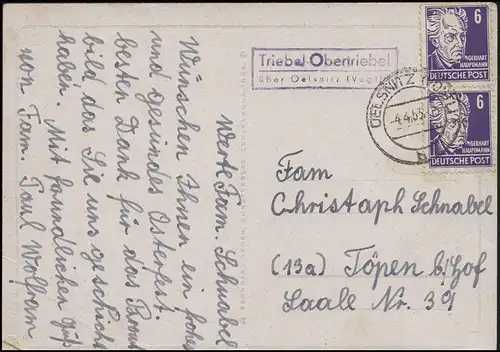 Werte Fam. Schnabel
Wünschen Ihnen ein frohes
und gesundes Osterfest.
besten Dank für das Brout
bild, das Sie uns geschickt
haben. Mit freundlichen Gß
von Fam. Paul Wolfram
Triebel-Obertriebel
über Oelsnitz (Vogtl)
OELSNITZ (VOGTL)
-4.4.53
6
GERHART
HAUPTMANN
DEUTSCHE POST
6
GERHART
HAUPTMANN
DEUTSCHE POST
Fam
Christoph Schnabel
(13a) Töpen b/Hof
Saale Nr. 39